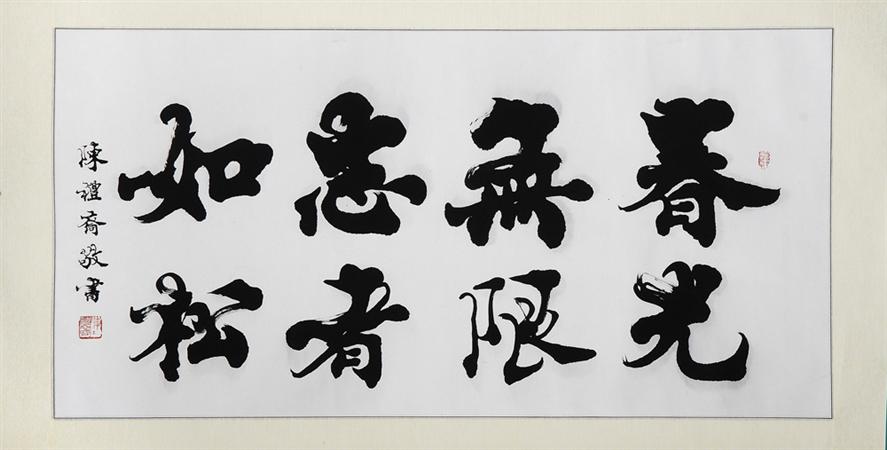 春光
無限
志者
如松
陳禮敬書